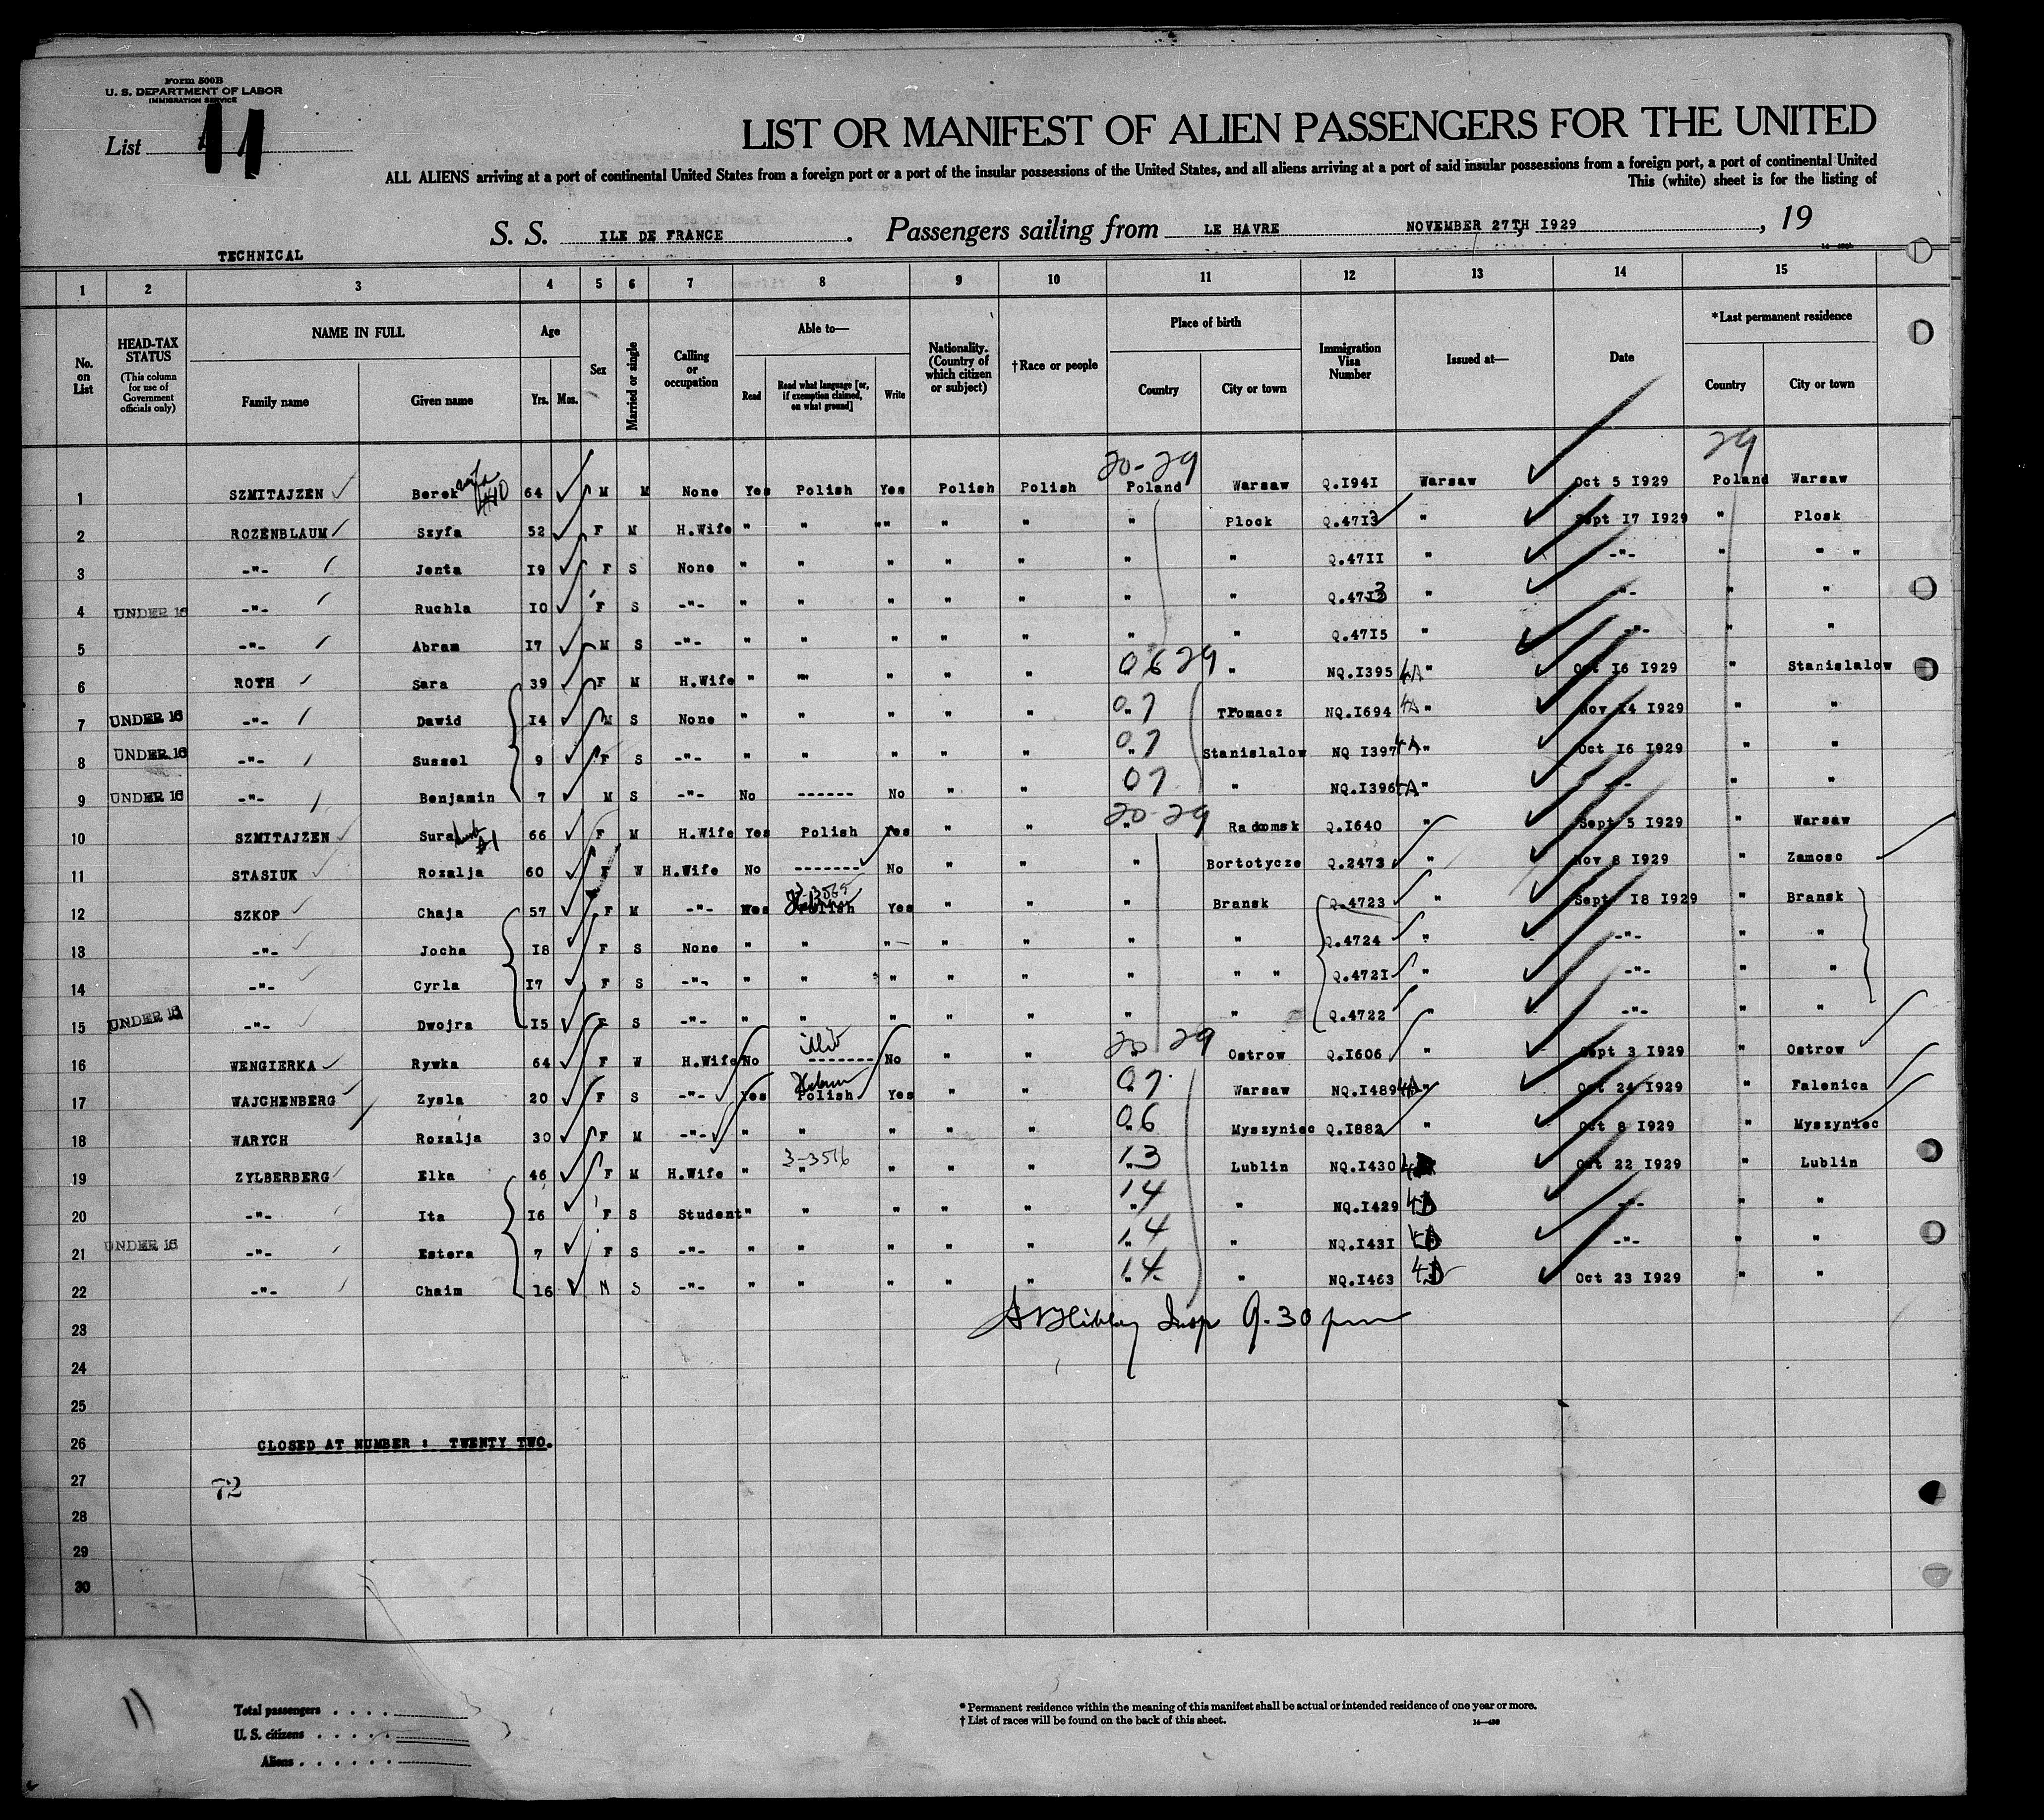 Form 500B
U. S. DEPARTMENT OF LABOR
IMMIGRATION SERVICE
List 11
LIST OR MANIFEST OF ALIEN PASSENGERS FOR THE UNITED
ALL ALIENS arriving at a port of continental United States from a foreign port or a port of the insular possessions of the United States, and all aliens arriving at a port of said insular possessions from a foreign port, a port of continental United
This (white) sheet is for the listing of
S. S. ILE DE FRANCE . Passengers sailing from LE HAVRE NOVEMBER 27TH I929 , 19
TECHNICAL
1 2 3 4 5 6 7 8 9 10 11 12 13 14 15
No. on List
HEAD-TAX STATUS (This column for use of Government officials only)
NAME IN FULL Family name Given name
Age Yrs. Mos.
Sex
Married or single
Calling or occupation
Able to— Read Read what language [or, if exemption claimed, on what ground] Write
Nationality. (Country of which citizen or subject)
†Race or people
Place of birth Country City or town
Immigration Visa Number
Issued at—
Date
*Last permanent residence Country City or town
20-29 29
1 SZMITAJZEN Berek wife #10 64 M M None Yes Polish Yes Polish Polish Poland Warsaw Q.I94I Warsaw Oct 5 I929 Poland Warsaw
2 ROZENBLAUM Szyfa 52 F M H.Wife " " "" " " " Plock Q.47I3 " Sept I7 I929 " Plosk
3 -"- Jenta I9 F S None " " " " " " " Q.47II " -"- " " "
4 UNDER 16 -"- Ruchla I0 F S -"- " " " " " " " Q.47I3 " -"- " "
5 -"- Abram I7 M S -"- " " " " " " " Q.47I5 " -"- " "
6 ROTH Sara 39 F M H.Wife " "" " " " 06 29 " NQ.I395 4A " Oct I6 I929 " Stanislalow
7 UNDER 16 -"- Dawid I4 M S None " " " " " 07 Tlomacz NQ.I694 4A " Nov I4 I929 " "
8 UNDER 16 -"- Sussel 9 F S -"- " " " " " 07 Stanislalow NQ I397 4A " Oct I6 I929 " "
9 UNDER 16 -"- Benjamin 7 M S -"- No ------ No " " 07 " NQ.I396 4A " -"- " "
10 SZMITAJZEN Sura husb #1 66 F M H.Wife Yes Polish Yes " " 20-29 " Radomsk Q.I640 " Sept 5 I929 " Warsaw
11 STASIUK Rozalja 60 F W H.Wife No ------- No " " " Bortotycze Q.2473 " Nov 8 I929 " Zamosc
12 SZKOP Chaja 57 F M -"- Yes Hebrew Polish Yes " " " Bransk Q.4723 " Sept I8 I929 " Bransk
13 -"- Jocha I8 F S None " " " " " " " Q.4724 " -"- " "
14 -"- Cyrla I7 F S -"- " " " " " " " " Q.472I " -"- " "
15 UNDER 16 -"- Dwojra I5 F S -"- " " " " " " " Q.4722 " -"- " "
16 WENGIERKA Rywka 64 F W H.Wife No ------- No " " 20 29 Ostrow Q.I606 " Sept 3 I929 " Ostrow
17 WAJCHENBERG Zysla 20 F S -"- Yes Hebrew Polish Yes " " 07 Warsaw NQ.I489 4A " Oct 24 I929 " Falenica
18 WARYCH Rozalja 30 F M -"- " " " " " 06 Myszyniec Q.I882 " Oct 8 I929 " Myszyniec
19 ZYLBERBERG Elka 46 F M H.Wife " 3-3516 " " " " 13 Lublin NQ.I430 Oct 22 I929 " Lublin
20 -"- Ita I6 F S Student " " " " " 14 " NQ.I429 -"- " "
21 UNDER 16 -"- Estera 7 F S -"- " " " " " 14 " NQ.I43I -"- " "
22 -"- Chaim 16 M S -"- " " " " " 14 " NQ.I463 Oct 23 I929 " "
23 Insp 9.30 pm
24
25
26 CLOSED AT NUMBER : TWENTY TWO.
27 72
28
29
30
11
Total passengers . . . .
U. S. citizens . . . . .
Aliens . . . . . .
* Permanent residence within the meaning of this manifest shall be actual or intended residence of one year or more.
† List of races will be found on the back of this sheet.